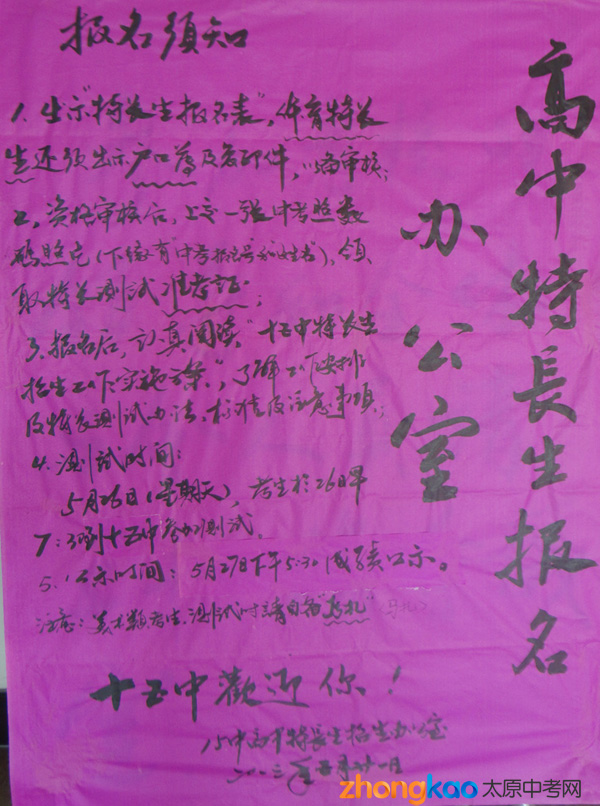 高中特長生报名
办公室
报名须知
1. 出示"特长生报名表"，体育特长
生还须出示户口簿及复印件，以备审核；
2、资格审核后，上交一张中考照数
码照完(下缘有"中考报名号和姓名")，领
取特长测试准考证；
3、报名后，认真阅读"十五中特长生
招生工作实施方案"，了解工作安排
及特长测试办法、标准及注意事项；
4、测试时间：
5月26日(星期天)，考生于26日早
7:30到十五中参加测试。
5、公示时间：5月27日下午5:30成绩公示。
注意：美术类考生，测试时请自备"马札"
十五中歡迎你！
15中高中特长生招生办公室
二〇〇二年五月廿一日
zhongkao太原中考网